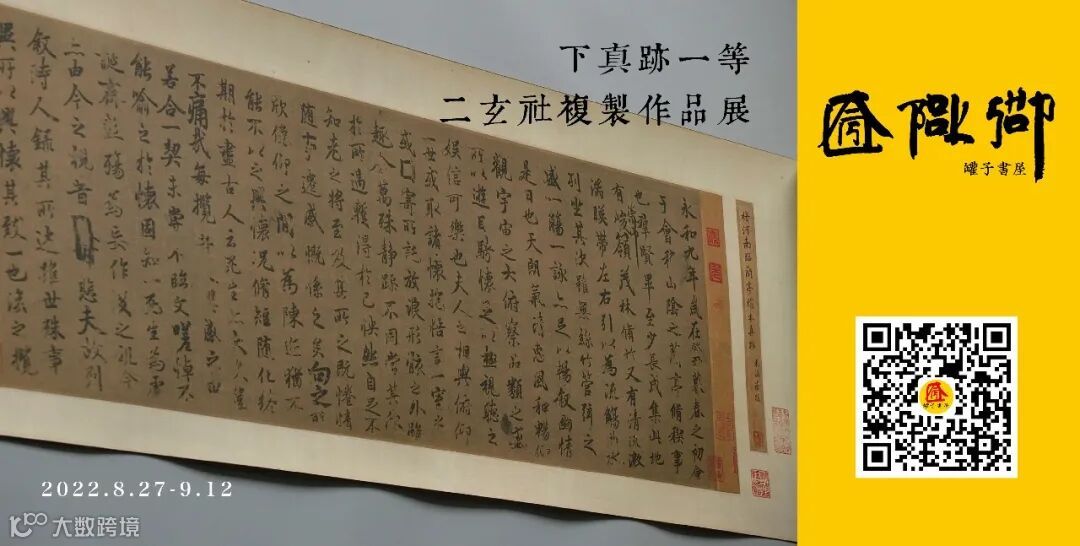 下真跡一等
二玄社複製作品展
罐子書屋
永和九年歲在癸丑暮春之初會
于會稽山陰之蘭亭脩禊事
也群賢畢至少長咸集此地
有峻領茂林脩竹又有清流激
湍暎帶左右引以為流觴曲水
列坐其次雖無絲竹管弦之
盛一觴一詠亦足以暢敘幽情
是日也天朗氣清惠風和暢仰
觀宇宙之大俯察品類之盛
所以遊目騁懷足以極視聽之
娛信可樂也夫人之相與俯仰
一世或取諸懷抱悟言一室之
或因寄所託放浪形骸之外雖
趣舍萬殊靜躁不同當其欣
於所遇蹔得於己怏然自足不
知老之將至及其所之既惓情
隨事遷感慨係之矣向之所
欣俛仰之閒以為陳迹猶不
能不以之興懷況脩短隨化終
期於盡古人云死生亦大矣豈
不痛哉每攬昔人興感之由
若合一契未嘗不臨文嗟悼不
能喻之於懷固知一死生為虛
誕齊彭殤為妄作後之視今
亦由今之視昔悲夫故列
敘時人錄其所述雖世殊事
異所以興懷其致一也後之攬
2022.8.27-9.12
大数跨境